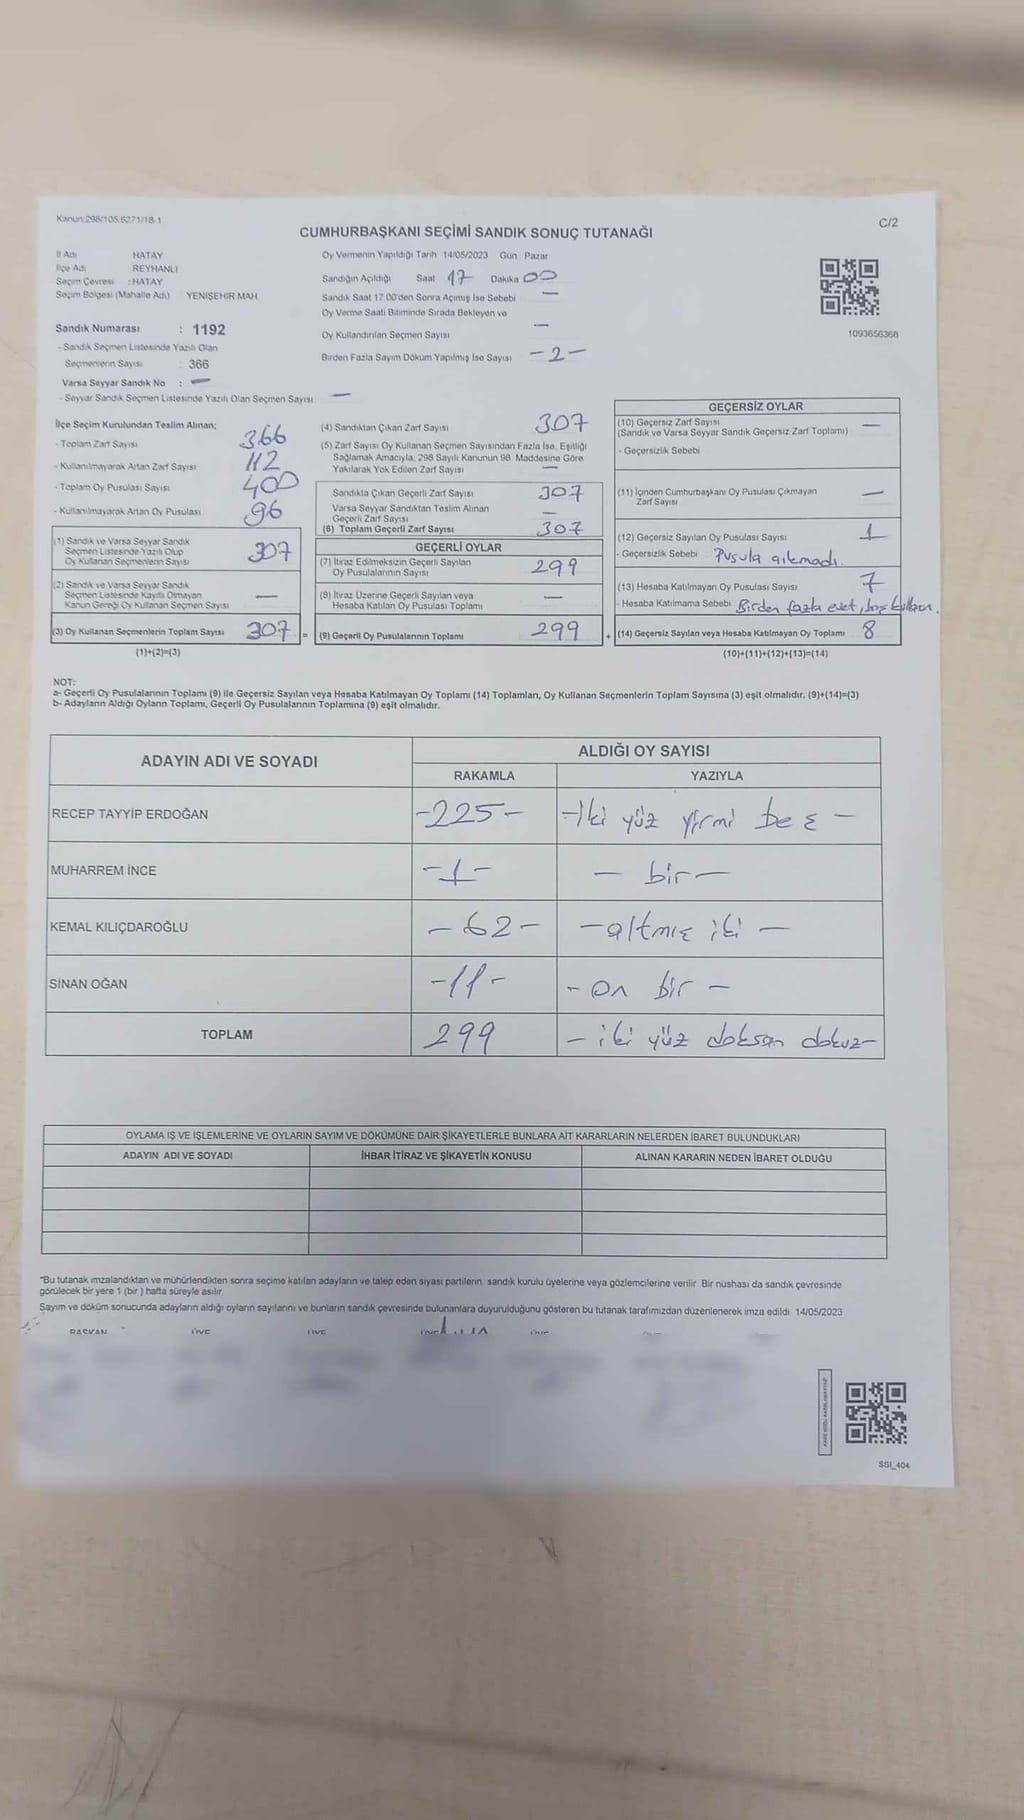 Kanun:298/105,6271/18-1
C/2
CUMHURBAŞKANI SEÇİMİ SANDIK SONUÇ TUTANAĞI
İl Adı HATAY
İlçe Adı REYHANLI
Seçim Çevresi : HATAY
Seçim Bölgesi (Mahalle Adı) YENİŞEHİR MAH
Sandık Numarası : 1192
- Sandık Seçmen Listesinde Yazılı Olan
Seçmenlerin Sayısı : 366
Varsa Seyyar Sandık No : —
- Seyyar Sandık Seçmen Listesinde Yazılı Olan Seçmen Sayısı —
Oy Vermenin Yapıldığı Tarih 14/05/2023 Gün Pazar
Sandığın Açıldığı Saat 17 Dakika 00
Sandık Saat 17.00'den Sonra Açımış İse Sebebi —
Oy Verme Saati Bitiminde Sırada Bekleyen ve
Oy Kullandırılan Seçmen Sayısı —
Birden Fazla Sayım Döküm Yapılmış İse Sayısı -2-
1093656368
İlçe Seçim Kurulundan Teslim Alınan;
- Toplam Zarf Sayısı 366
- Kullanılmayarak Artan Zarf Sayısı 112
- Toplam Oy Pusulası Sayısı 400
- Kullanılmayarak Artan Oy Pusulası 96
(1) Sandık ve Varsa Seyyar Sandık
Seçmen Listesinde Yazılı Olup
Oy Kullanan Seçmenlerin Sayısı 307
(2) Sandık ve Varsa Seyyar Sandık
Seçmen Listesinde Kayıtlı Olmayan
Kanun Gereği Oy Kullanan Seçmen Sayısı —
(3) Oy Kullanan Seçmenlerin Toplam Sayısı 307 =
(1)+(2)=(3)
(4) Sandıktan Çıkan Zarf Sayısı 307
(5) Zarf Sayısı Oy Kullanan Seçmen Sayısından Fazla İse, Eşitliği
Sağlamak Amacıyla, 298 Sayılı Kanunun 98. Maddesine Göre
Yakılarak Yok Edilen Zarf Sayısı —
Sandıkta Çıkan Geçerli Zarf Sayısı 307
Varsa Seyyar Sandıktan Teslim Alınan
Geçerli Zarf Sayısı —
(6) Toplam Geçerli Zarf Sayısı 307
GEÇERLİ OYLAR
(7) İtiraz Edilmeksizin Geçerli Sayılan
Oy Pusulalarının Sayısı 299
(8) İtiraz Üzerine Geçerli Sayılan veya
Hesaba Katılan Oy Pusulası Toplamı —
(9) Geçerli Oy Pusulalarının Toplamı 299 +
GEÇERSİZ OYLAR
(10) Geçersiz Zarf Sayısı
(Sandık ve Varsa Seyyar Sandık Geçersiz Zarf Toplamı) —
- Geçersizlik Sebebi
(11) İçinden Cumhurbaşkanı Oy Pusulası Çıkmayan
Zarf Sayısı —
(12) Geçersiz Sayılan Oy Pusulası Sayısı 1
- Geçersizlik Sebebi Pusula çıkmadı.
(13) Hesaba Katılmayan Oy Pusulası Sayısı 7
- Hesaba Katılmama Sebebi Birden fazla evet, boş
(14) Geçersiz Sayılan veya Hesaba Katılmayan Oy Toplamı 8
(10)+(11)+(12)+(13)=(14)
NOT:
a- Geçerli Oy Pusulalarının Toplamı (9) ile Geçersiz Sayılan veya Hesaba Katılmayan Oy Toplamı (14) Toplamları, Oy Kullanan Seçmenlerin Toplam Sayısına (3) eşit olmalıdır. (9)+(14)=(3)
b- Adayların Aldığı Oyların Toplamı, Geçerli Oy Pusulalarının Toplamına (9) eşit olmalıdır.
ADAYIN ADI VE SOYADI ALDIĞI OY SAYISI
RAKAMLA YAZIYLA
RECEP TAYYİP ERDOĞAN -225- -İki yüz yirmi beş -
MUHARREM İNCE -1- - bir -
KEMAL KILIÇDAROĞLU - 62 - -altmış iki -
SİNAN OĞAN -11- - on bir -
TOPLAM 299 - iki yüz doksan dokuz-
OYLAMA İŞ VE İŞLEMLERİNE VE OYLARIN SAYIM VE DÖKÜMÜNE DAİR ŞİKAYETLERLE BUNLARA AİT KARARLARIN NELERDEN İBARET BULUNDUKLARI
ADAYIN ADI VE SOYADI İHBAR İTİRAZ VE ŞİKAYETİN KONUSU ALINAN KARARIN NEDEN İBARET OLDUĞU
*Bu tutanak imzalandıktan ve mühürlendikten sonra seçime katılan adayların ve talep eden siyasi partilerin sandık kurulu üyelerine veya gözlemcilerine verilir. Bir nüshası da sandık çevresinde
görülecek bir yere 1 (bir) hafta süreyle asılır.
Sayım ve döküm sonucunda adayların aldığı oyların sayılarını ve bunların sandık çevresinde bulunanlara duyurulduğunu gösteren bu tutanak tarafımızdan düzenlenerek imza edildi. 14/05/2023
BAŞKAN ÜYE ÜYE ÜYE ÜYE
SSI_404